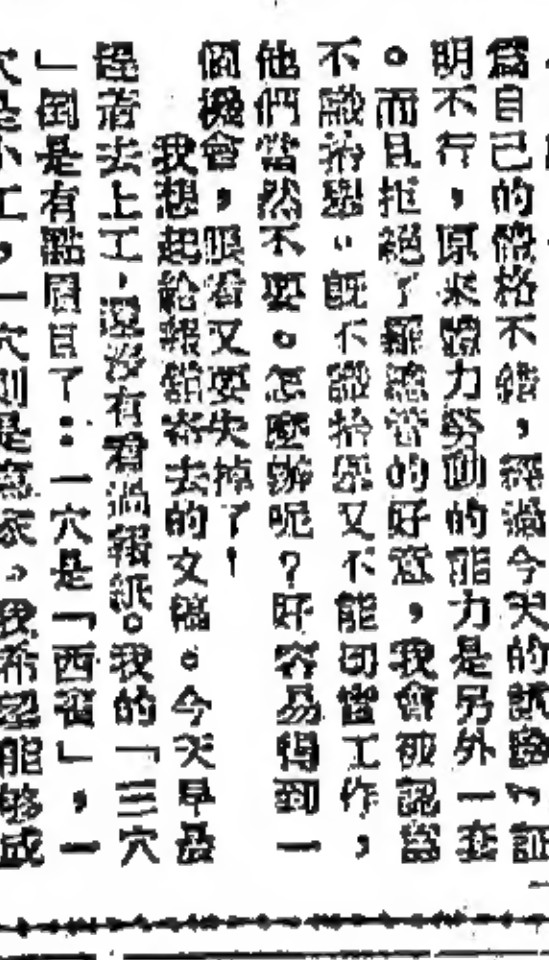 爲自己的體格不錯，經過今天的試驗，証
明不行，原來體力勞動的能力是另外一套
。而且拒絕了羅總管的好意，我會被認爲
不識抬舉。既不識抬舉又不能切實工作，
他們當然不要。怎麼辦呢？好容易得到一
個機會，眼看又要失掉了！
我想起給報館寄去的文稿。今天早晨
趕着去上工，還沒有看過報紙。我的「三穴
」倒是有點眉目了：一穴是「西賓」，一
穴是小工，一穴則是寫家。我希望能够成